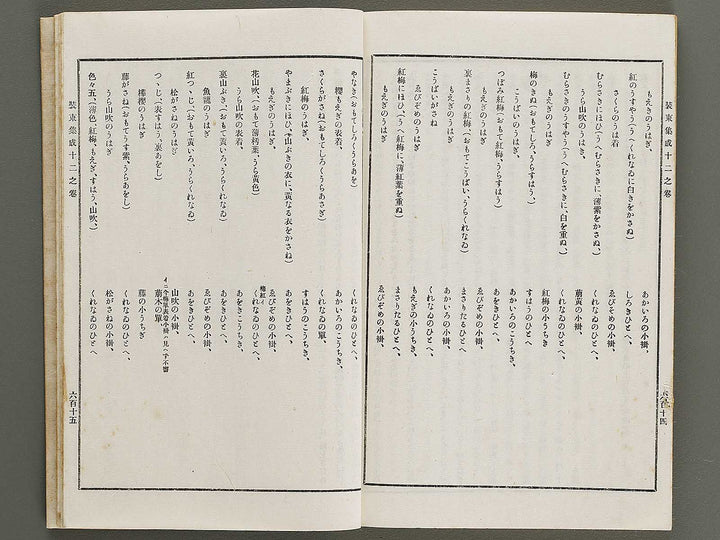 装束集成十二之卷
もえぎのうはぎ、
あかいろの小褂、
紅のうすやう(うへくれなゐに白きをかさぬ)
しろきひとへ、
さくらのうは着
ゑびぞめの小褂、
むらさきにほひ(うへむらさきに、薄紫をかさぬ、)
くれなゐのひとへ、
うら山吹のうはぎ、
萠黄の小褂、
むらさきのうすやう(うへむらさきに、白を重ぬ、)
くれなゐのひとへ、
もえぎのうはぎ
紅梅の小うちき
梅のきぬ(おもてしろ、うらすはう、)
すはうのひとへ
こうばいのうはぎ、
あかいろのこうちき、
つぼみ紅梅(おもて紅梅、うらすはう)
あをきひとへ、
もえぎのうはぎ
ゑびぞめの小褂、
裏まさりの紅梅(おもてこうばい、うらくれなゐ)
まさりたるひとへ、
もえぎのうはぎ
あかいろの小褂、
こうばいがさね
くれなゐのひとへ、
ゑびぞめのうはぎ
もえぎの小うちき、
紅梅にほひ(うへ紅梅に、薄紅葉を重ぬ)
まさりたるひとへ、
もえぎのうはぎ
ゑびぞめの小褂、
六百十四
やなぎ(おもてしろくうらあを)
くれなゐのひとへ、
櫻もえぎの表着、
あかいろのこうちき、
さくらがさね(おもてしろくうらあさぎ)
くれなゐの單、
紅梅のうはぎ、
すはうのこうちき、
やまぶきにほひ(山ぶきの衣に、黃なる衣をかさね)
あをきひとへ、
もえぎのうはぎ、
ゑびぞめの小褂、
花山吹、(おもて薄朽葉、うら黃色)
くれなゐのひとへ、
うら山吹の表着、
あかきこうちき、
裏山ぶき(おもて黃いろ、うらくれなゐ)
あをきひとへ、
魚龍のうはぎ
ゑびぞめの小褂、
紅つゝじ(おもて黃いろ、うらくれなゐ)
あをきひとへ、
松がさねのうはぎ
山吹の小褂、
つゝじ(表すはう裏あをし)
萠木の單
樺櫻のうはぎ
藤の小うちぎ
藤がさね(おもてうす紫、うらあをし)
くれなゐのひとへ、
うら山吹のうはぎ
松がさねの小褂、
色々五(薄色、紅梅、もえぎ、すはう、山吹、)
くれなゐのひとへ、
装束集成十二之卷
六百十五